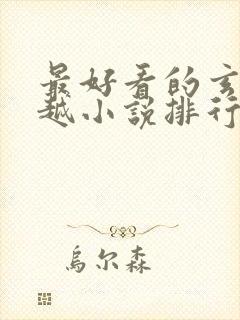 最好看的玄
越小說排行
烏尔森